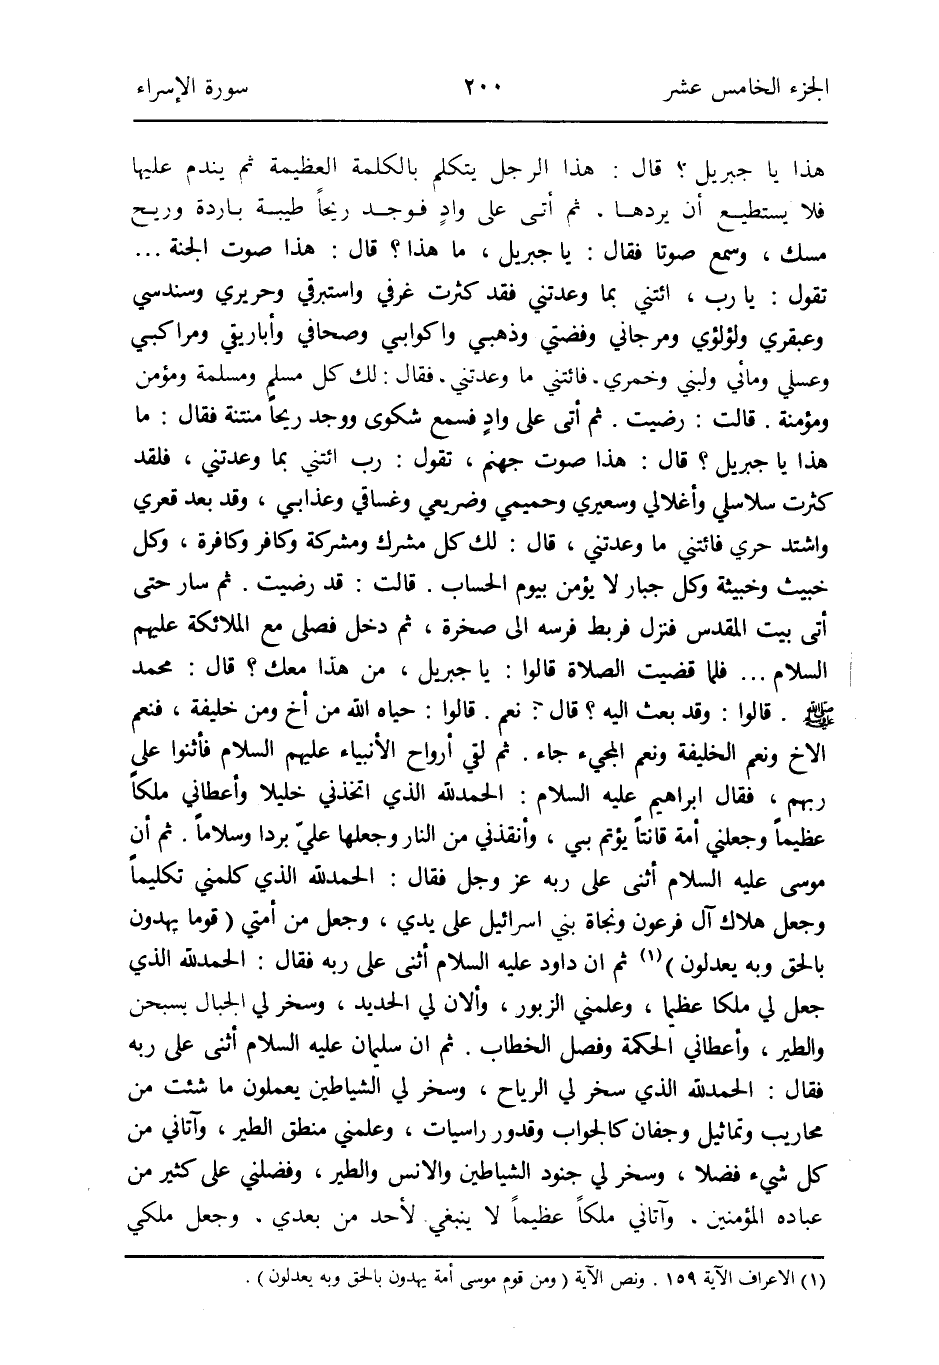 الجزء الخامس عشر ٢٠٠ سورة الإسراء
هذا يا جبريل ؟ قال : هذا الرجل يتكلم بالكلمة العظيمة ثم يندم عليها
فلا يستطيع أن يردها . ثم أتى على وادٍ فوجد ريحاً طيبة باردة وريح
مسك ، وسمع صوتا فقال : يا جبريل ، ما هذا ؟ قال : هذا صوت الجنة ...
تقول : يا رب ، ائتني بما وعدتني فقد كثرت غرفي واستبرقي وحريري وسندسي
وعبقري ولؤلؤي ومرجاني وفضتي وذهبي واكوابي وصحافي وأباريقي ومراكبي
وعسلي ومائي ولبني وخمري . فائتني ما وعدتني . فقال : لك كل مسلم ومسلمة ومؤمن
ومؤمنة . قالت : رضيت . ثم أتى على وادٍ فسمع شكوى ووجد ريحاً منتنة فقال : ما
هذا يا جبريل ؟ قال : هذا صوت جهنم ، تقول : رب ائتني بما وعدتني ، فلقد
كثرت سلاسلي وأغلالي وسعيري وحميمي وضريعي وغساقي وعذابي ، وقد بعد قعري
واشتد حري فائتني ما وعدتني ، قال : لك كل مشرك ومشركة وكافر وكافرة ، وكل
خبيث وخبيثة وكل جبار لا يؤمن بيوم الحساب . قالت : قد رضيت . ثم سار حتى
أتى بيت المقدس فنزل فربط فرسه الى صخرة ، ثم دخل فصلى مع الملائكة عليهم
السلام ... فلما قضيت الصلاة قالوا : يا جبريل ، من هذا معك ؟ قال : محمد
ﷺ . قالوا : وقد بعث اليه ؟ قال : نعم . قالوا : حياه الله من أخ ومن خليفة ، فنعم
الاخ ونعم الخليفة ونعم المجيء جاء . ثم لقي أرواح الأنبياء عليهم السلام فأثنوا على
ربهم ، فقال ابراهيم عليه السلام : الحمدلله الذي اتخذني خليلا وأعطاني ملكاً
عظيماً وجعلني أمة قانتاً يؤتم بي ، وأنقذني من النار وجعلها عليّ بردا وسلاماً . ثم أن
موسى عليه السلام أثنى على ربه عز وجل فقال : الحمدلله الذي كلمني تكليماً
وجعل هلاك آل فرعون ونجاة بني اسرائيل على يدي ، وجعل من أمتي ( قوما يهدون
بالحق وبه يعدلون )(١) ثم ان داود عليه السلام أثنى على ربه فقال : الحمدلله الذي
جعل لي ملكا عظيما ، وعلمني الزبور ، وألان لي الحديد ، وسخر لي الجبال يسبحن
والطير ، وأعطاني الحكمة وفصل الخطاب . ثم ان سليمان عليه السلام أثنى على ربه
فقال : الحمدلله الذي سخر لي الرياح ، وسخر لي الشياطين يعملون ما شئت من
محاريب وتماثيل وجفان كالجواب وقدور راسيات ، وعلمني منطق الطير ، وآتاني من
كل شيء فضلا ، وسخر لي جنود الشياطين والانس والطير ، وفضلني على كثير من
عباده المؤمنين . وآتاني ملكاً عظيماً لا ينبغي لأحد من بعدي . وجعل ملكي
(١) الاعراف الآية ١٥٩ . ونص الآية ( ومن قوم موسى أمة يهدون بالحق وبه يعدلون ) .